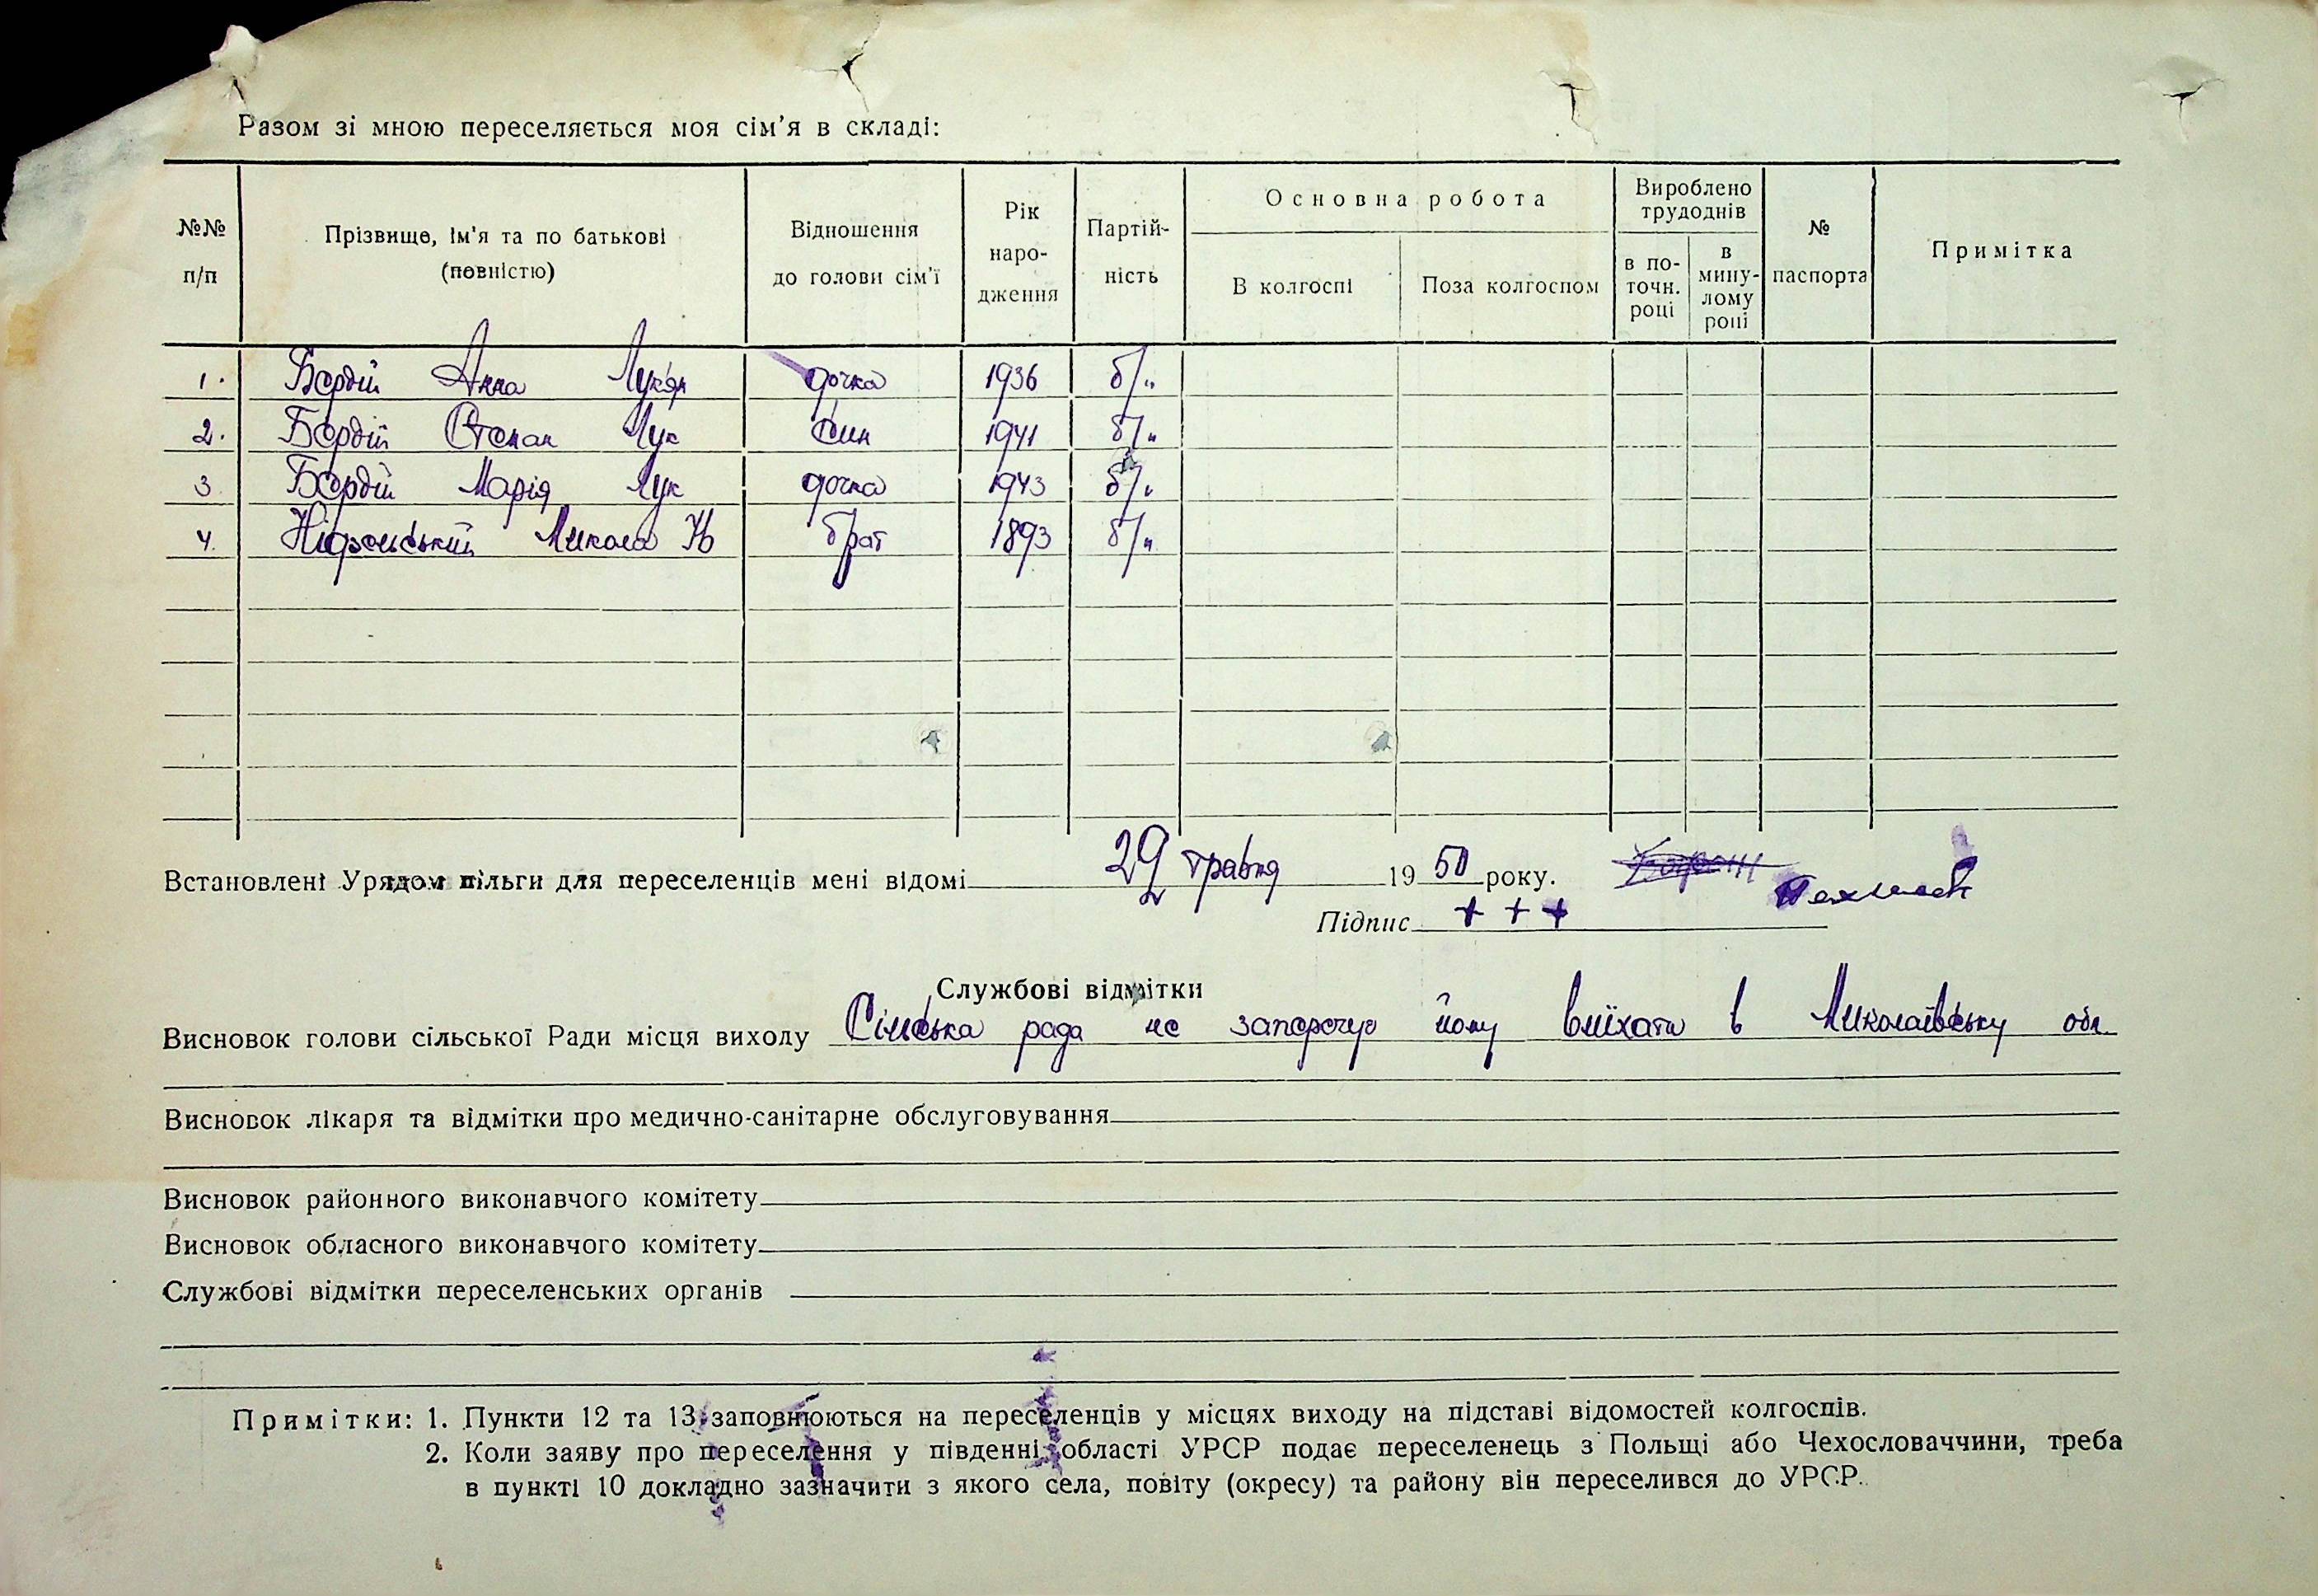 Разом зі мною переселяється моя сім'я в складі:
№№ п/п
Прізвище, ім'я та по батькові (повністю)
Відношення до голови сім'ї
Рік народження
Партійність
Основна робота
В колгоспі
Поза колгоспом
Вироблено трудоднів
в поточн. році
в минулому році
№ паспорта
Примітка
1. Бердій Анна Лукян дочка 1936 б/п
2. Бердій Степан Лук Син 1941 б/п
3 Бердій Марія Лук дочка 1943 б/п
4. Микола брат 1893 б/п
Встановлені Урядом пільги для переселенців мені відомі 29 травня 1950 року.
Підпис + + +
Службові відмітки
Висновок голови сільської Ради місця виходу Сільська рада не заперечує йому виїхати в Миколаївську обл.
Висновок лікаря та відмітки про медично-санітарне обслуговування
Висновок районного виконавчого комітету
Висновок обласного виконавчого комітету
Службові відмітки переселенських органів
Примітки: 1. Пункти 12 та 13 заповнюються на переселенців у місцях виходу на підставі відомостей колгоспів.
2. Коли заяву про переселення у південні області УРСР подає переселенець з Польщі або Чехословаччини, треба
в пункті 10 докладно зазначити з якого села, повіту (окресу) та району він переселився до УРСР.